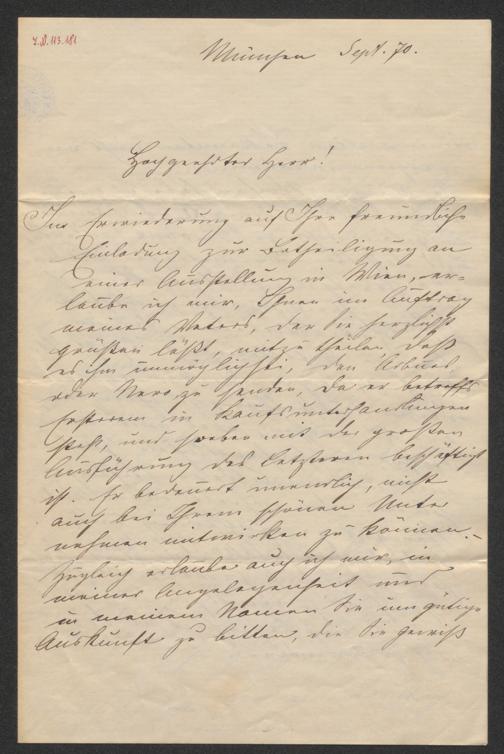 I.N. 113.181
München Sept. 70.
Hochgeehrter Herr!
In Erwiederung auf Ihre freundliche
Einladung zur Betheiligung an
einer Ausstellung in Wien, er-
laube ich mir, Ihnen im Auftrag
meines Vaters, der Sie herzlichst
grüßen läßt, mitzutheilen daß
es ihm unmöglich ist, den Arbues,
oder Nero zu senden, da er betreffs
Ersterem in Kaufsunterhandlungen
steht, und soeben mit der großen
Ausführung des Letzteren beschäftigt
ist. Er bedauert unendlich, nicht
auch bei Ihrem schönen Unter
nehmen mitwirken zu können. –
Zugleich erlaube auch ich mir, in
meiner Angelegenheit und
in meinem Namen Sie um gütige
Auskunft zu bitten, die Sie gewiß